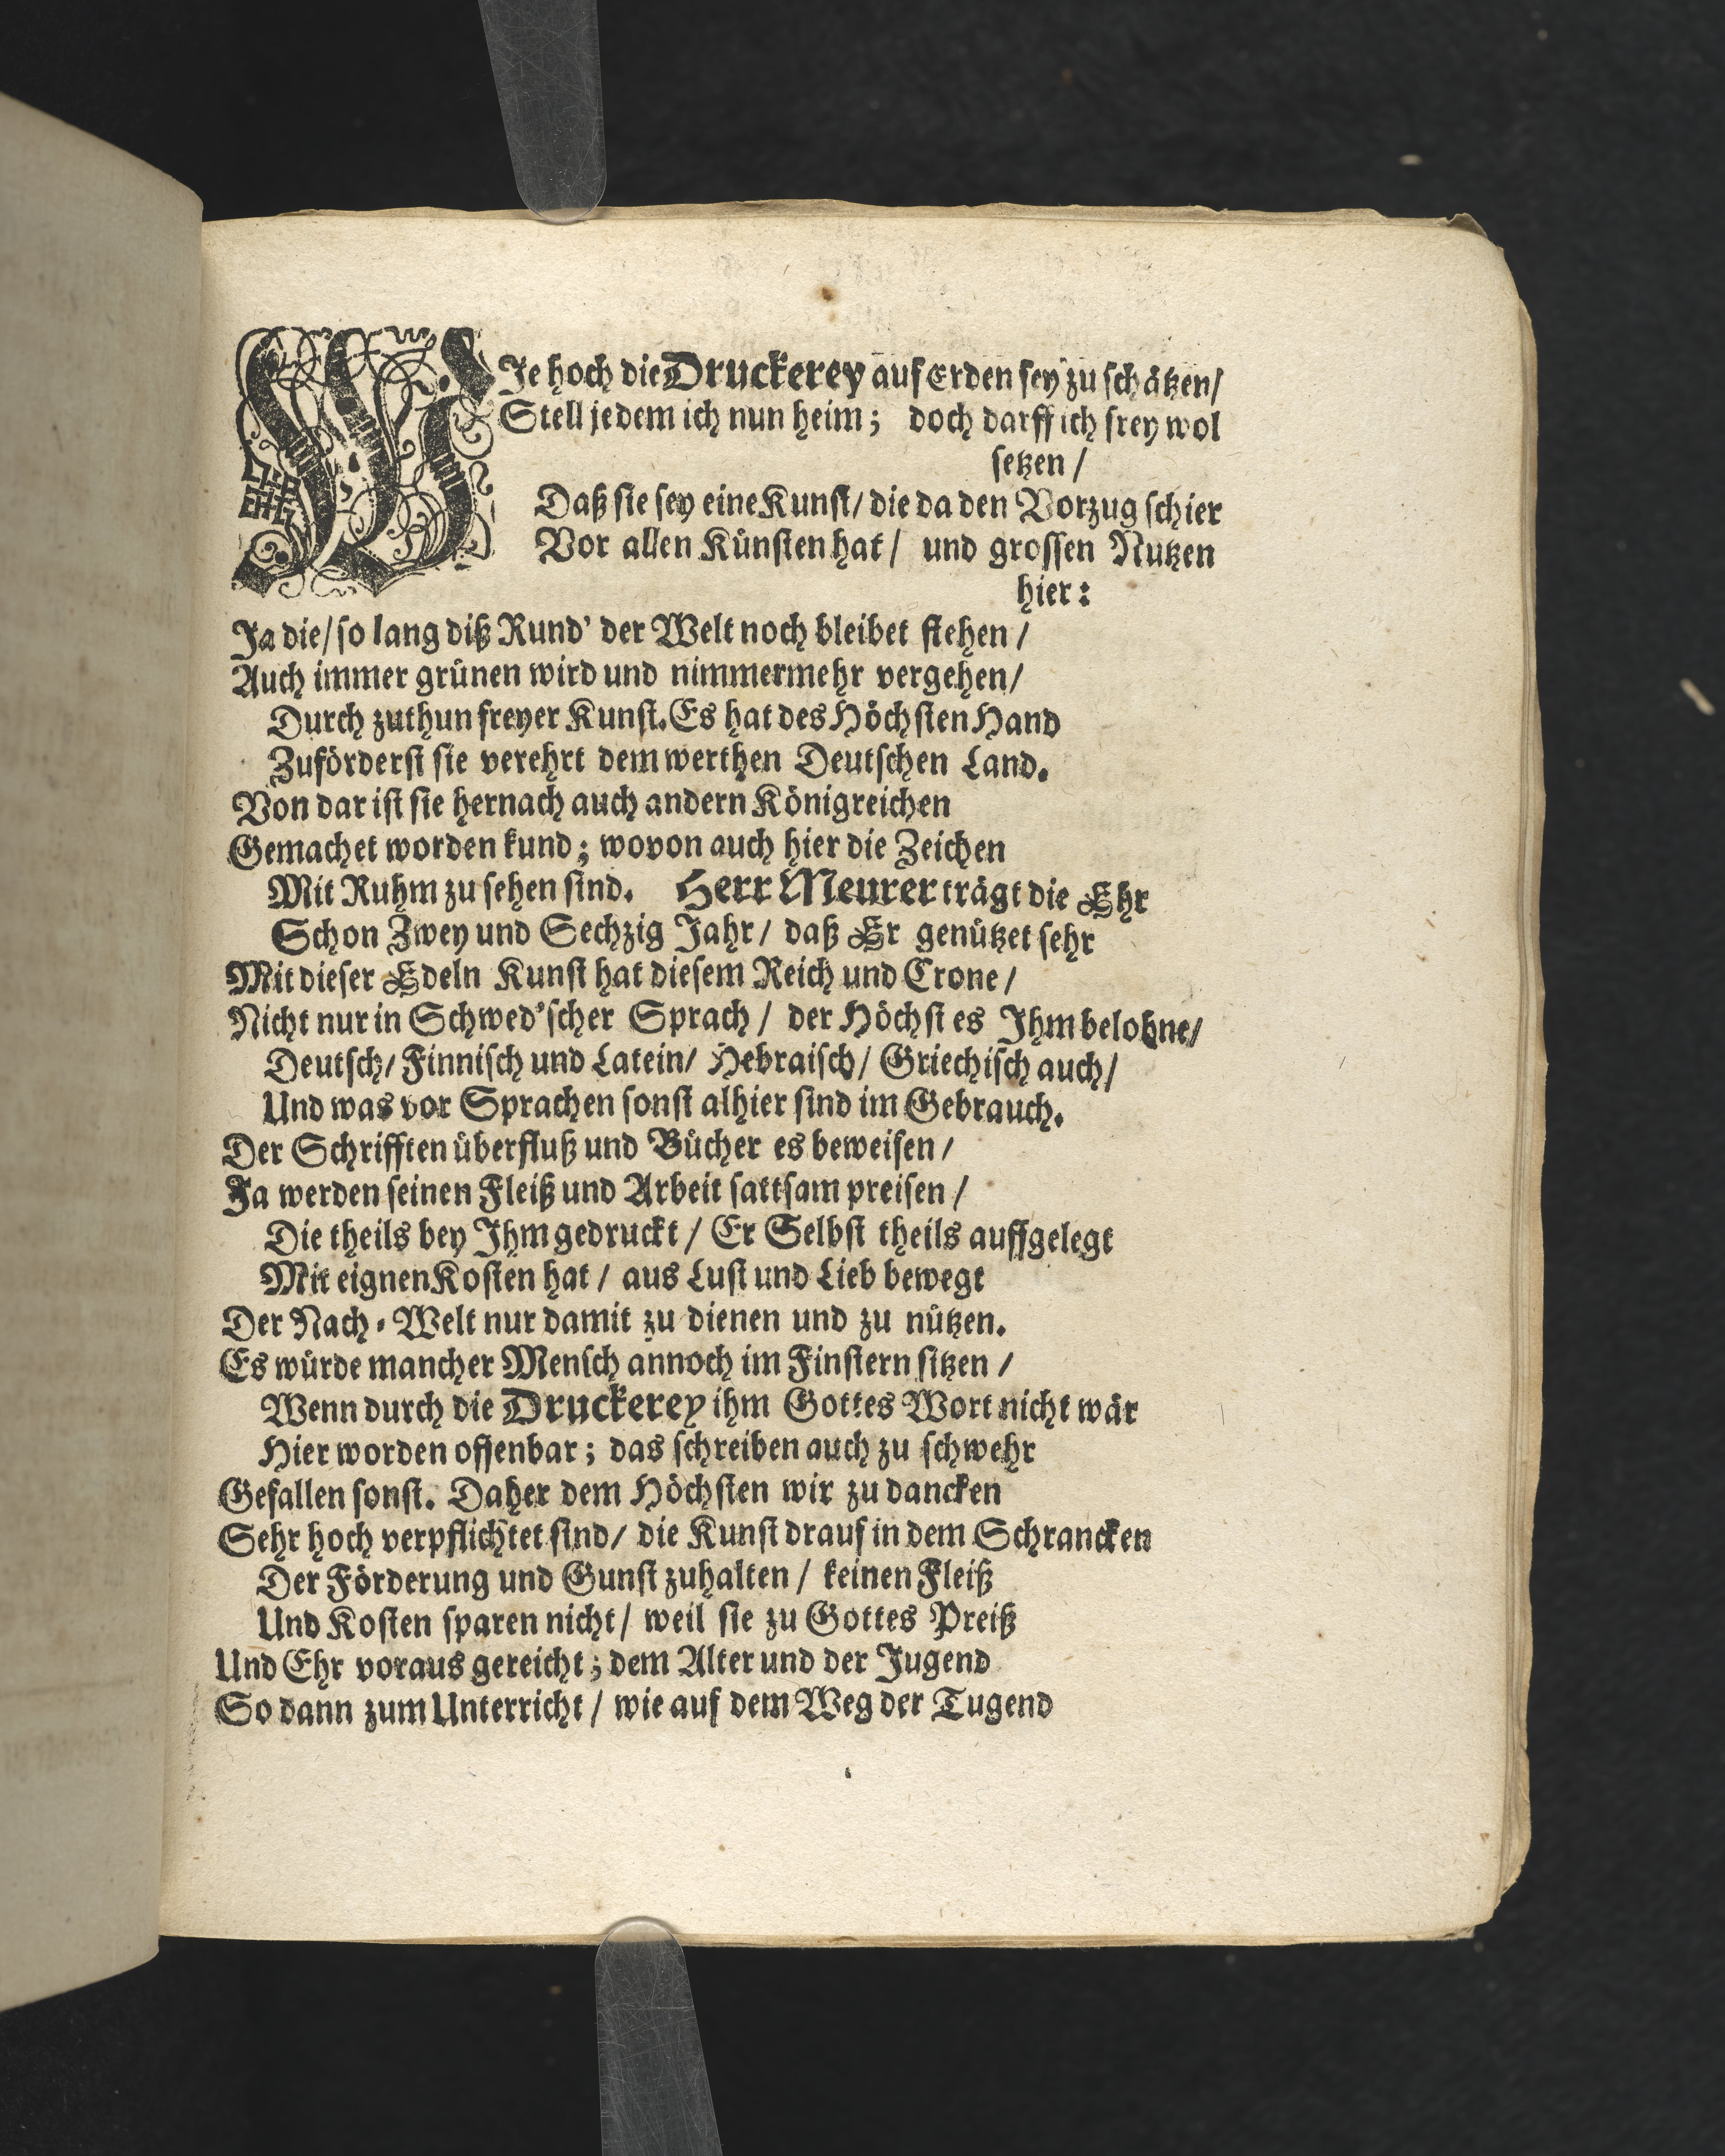 WJe hoch die Druckerey auf Erden sey zu schätzen/
Stell jedem ich nun heim; doch darff ich frey wol
setzen /
Daß sie sey eine Kunst/ die da den Vorzug schier
Vor allen Künsten hat / und grossen Nutzen
hier:
Ja die/ so lang diß Rund' der Welt noch bleibet stehen /
Auch immer grünen wird und nimmermehr vergehen/
Durch zuthun freyer Kunst. Es hat des Höchsten Hand
Zuförderst sie verehrt dem werthen Deutschen Land.
Von dar ist sie hernach auch andern Königreichen
Gemachet worden kund; wovon auch hier die Zeichen
Mit Ruhm zu sehen sind. Herr Meurer trägt die Ehr
Schon Zwey und Sechzig Jahr / daß Er genützet sehr
Mit dieser Edeln Kunst hat diesem Reich und Crone /
Nicht nur in Schwed'scher Sprach / der Höchst es Ihm belohne/
Deutsch/ Finnisch und Latein/ Hebraisch/ Griechisch auch/
Und was vor Sprachen sonst alhier sind im Gebrauch.
Der Schrifften überfluß und Bücher es beweisen /
Ja werden seinen Fleiß und Arbeit sattsam preisen /
Die theils bey Ihm gedruckt / Er Selbst theils auffgelegt
Mit eignen Kosten hat / aus Lust und Lieb bewegt
Der Nach-Welt nur damit zu dienen und zu nützen.
Es würde mancher Mensch annoch im Finstern sitzen /
Wenn durch die Druckerey ihm Gottes Wort nicht wär
Hier worden offenbar; das schreiben auch zu schwehr
Gefallen sonst. Daher dem Höchsten wir zu dancken
Sehr hoch verpflichtet sind/ die Kunst drauf in dem Schrancken
Der Förderung und Gunst zuhalten / keinen Fleiß
Und Kosten sparen nicht / weil sie zu Gottes Preiß
Und Ehr voraus gereicht; dem Alter und der Jugend
So dann zum Unterricht / wie auf dem Weg der Tugend